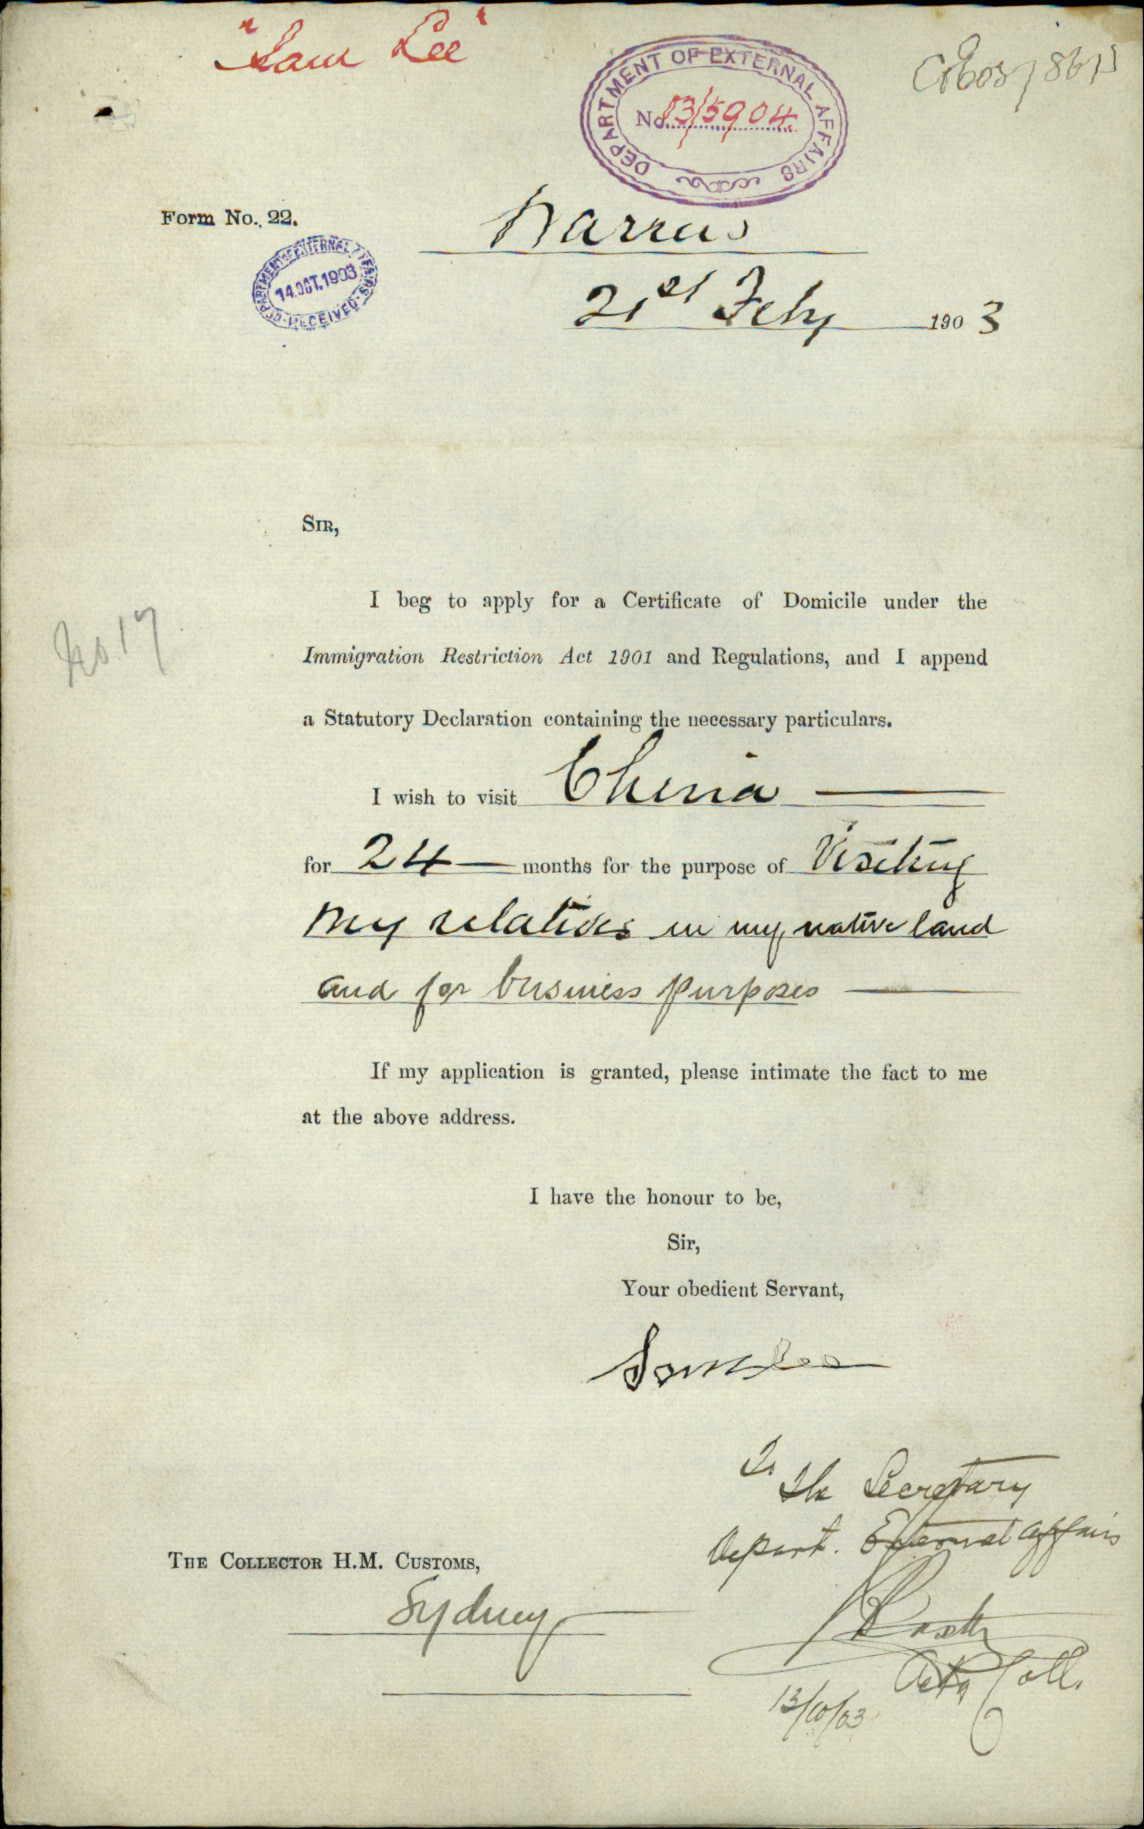 "Sam Lee"
DEPARTMENT OF EXTERNAL AFFAIRS
No. 03/5904
Form No. 22.
DEPARTMENT OF EXTERNAL AFFAIRS
14.OCT.1903
RECEIVED
21st Feby 1903
SIR,
No 17
I beg to apply for a Certificate of Domicile under the
Immigration Restriction Act 1901 and Regulations, and I append
a Statutory Declaration containing the necessary particulars.
I wish to visit China
for 24 months for the purpose of Visiting
my relatives in my native land
and for business purposes
If my application is granted, please intimate the fact to me
at the above address.
I have the honour to be,
Sir,
Your obedient Servant,
Sam Lee
To
The Secretary
Depart. External Affairs
THE COLLECTOR H.M. CUSTOMS,
Sydney
Actg Coll.
13/10/03